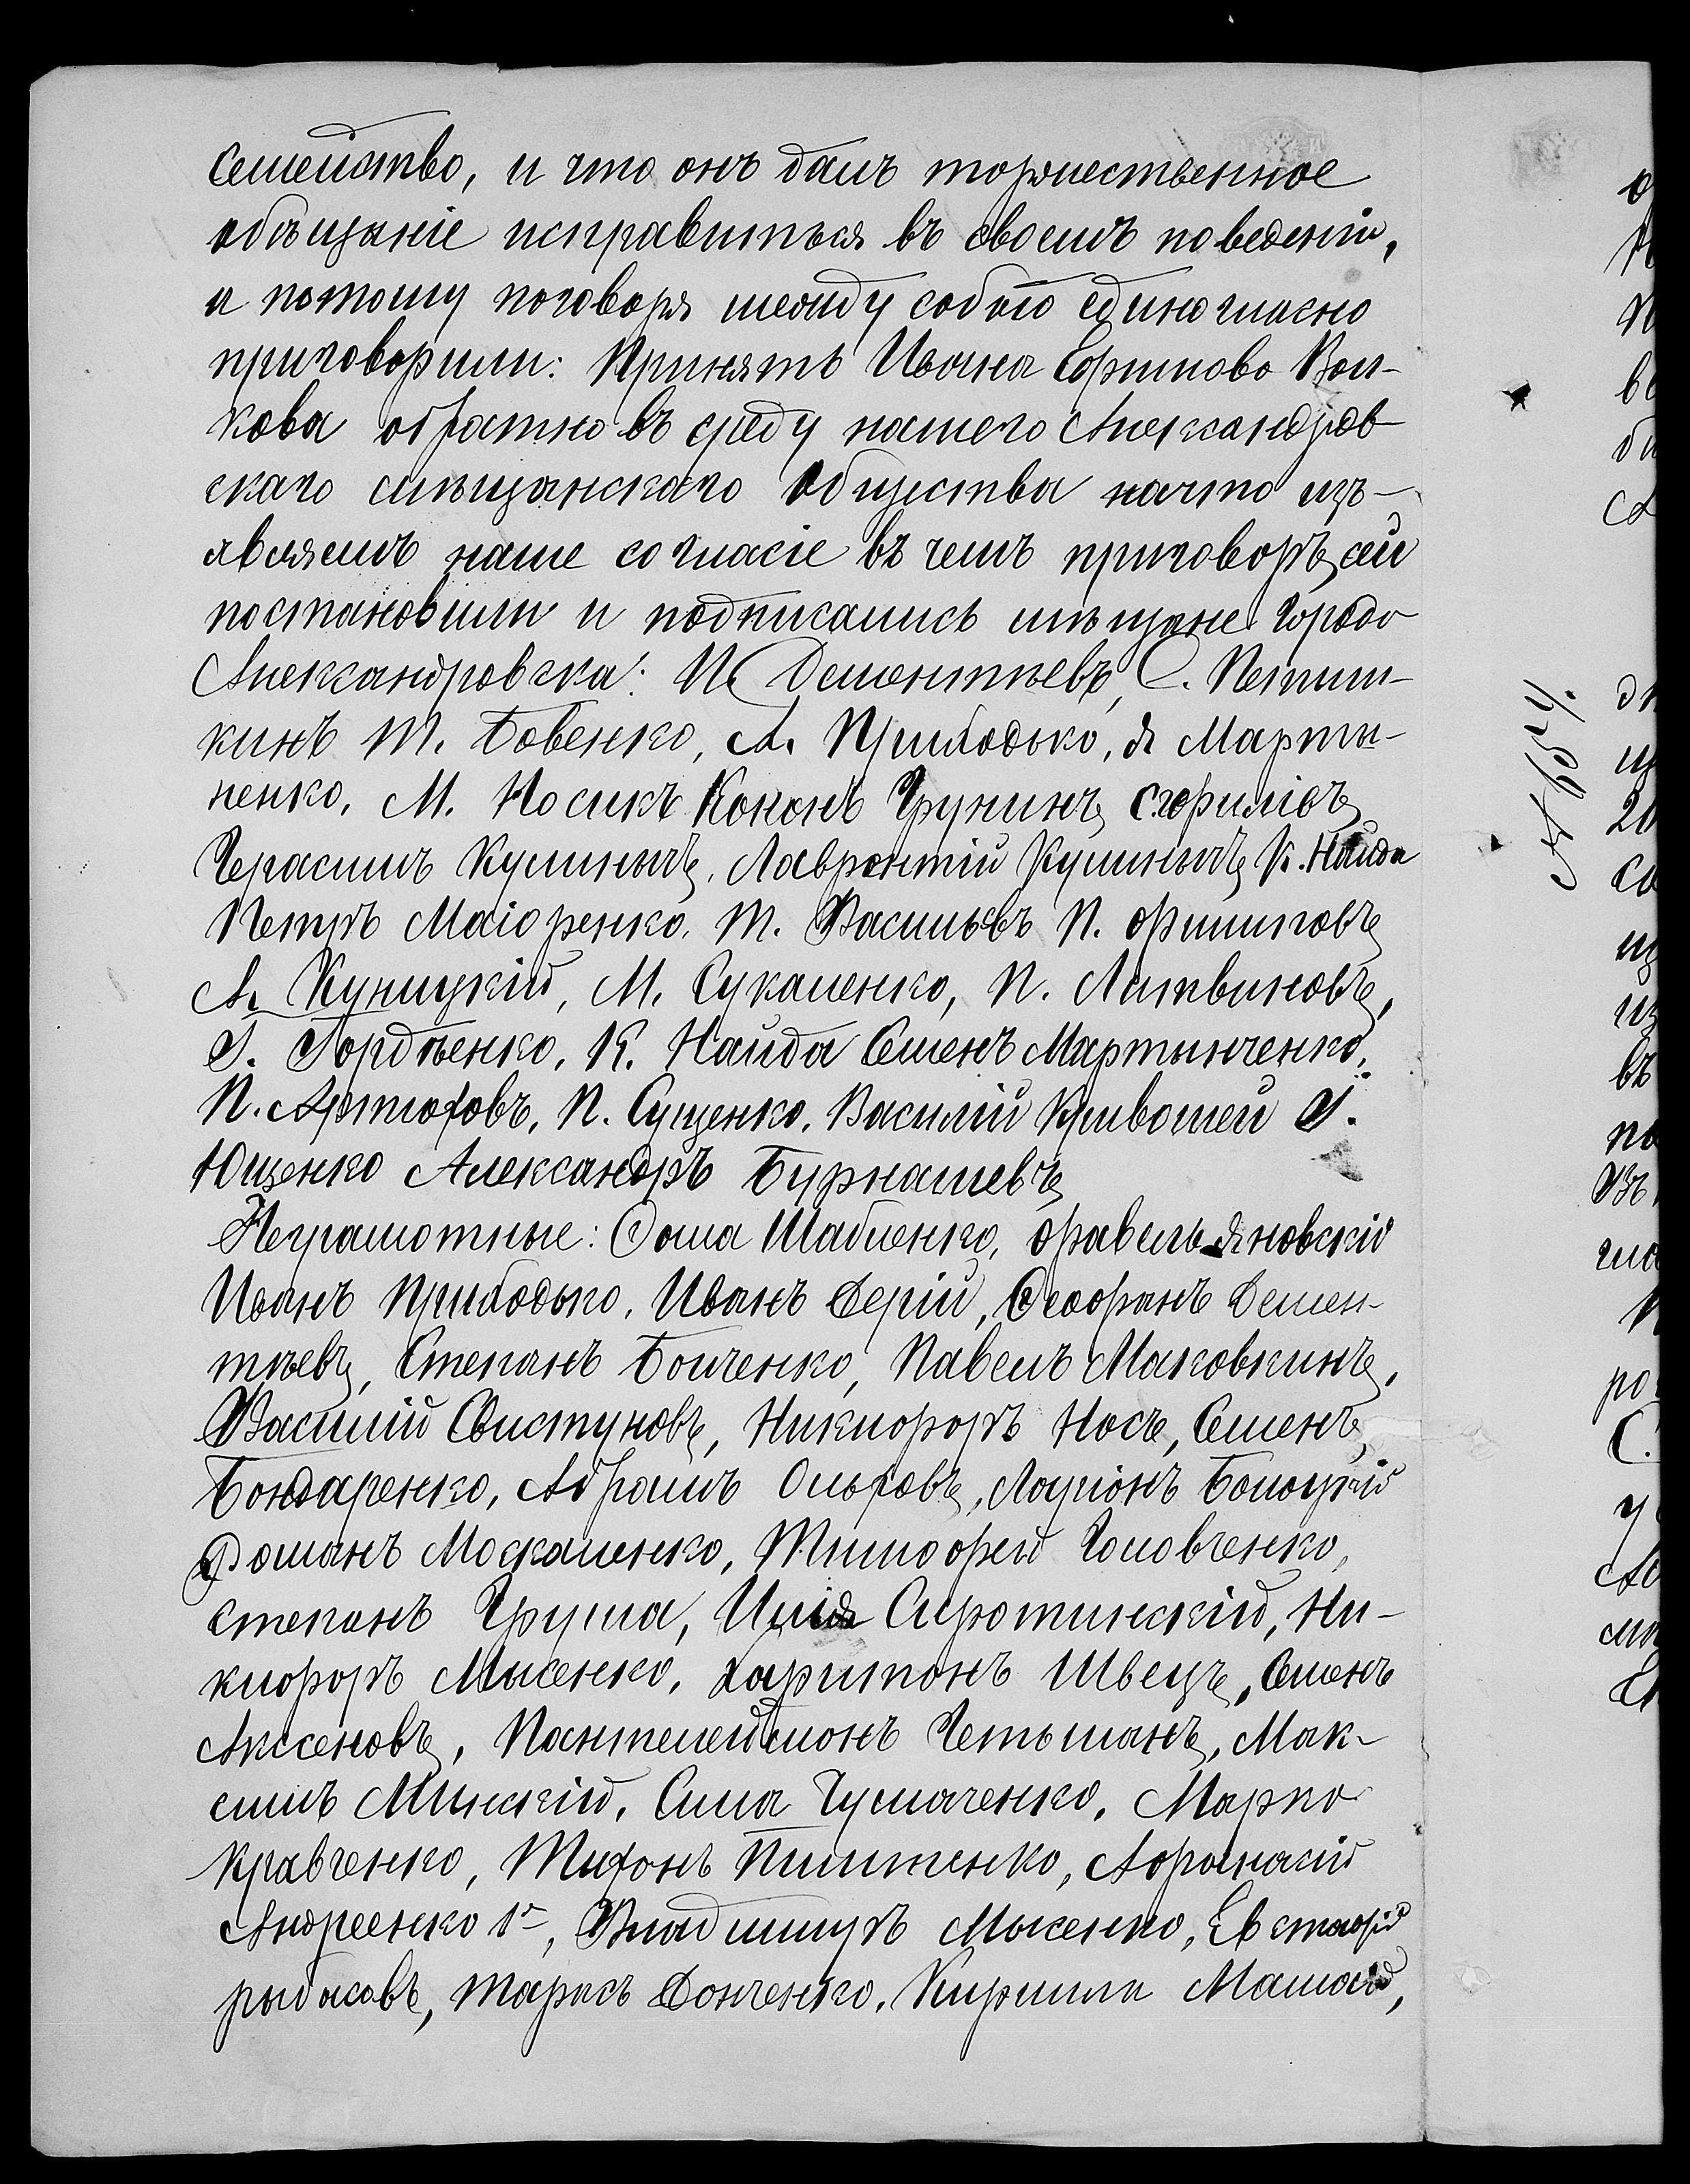 семейство, и что онъ далъ торжественное
обѣщаніе исправиться въ своемъ поведеніи,
а потому поговоря между собою единогласно
приговорили: Принять Ивана Ефимово Вол-
кова обратно въ среду нашего Александров-
скаго мѣщанскаго Общества на что изъ-
являемъ наше согласіе въ чемъ приговоръ сей
постановили и подписались мѣщане города
Александровска: И. Дементьевъ, С. Петиш-
кинъ Т. Бовенко, А. Приходько, Я Марты-
ненко, М. Носикъ Кононъ Грунинъ,
Герасимъ Кулинычъ, Лаврентій Кулинычъ, К. Найда
Петръ Маіоренко, Т. Васильевъ П. Филиповъ,
А. Куницкій, М. Сукаленко, П. Литвиновъ,
І. Гордѣенко, К. Найда Семенъ Мартынченко,
П. Артюховъ, П. Сущенко, Василій Кривошей І.
Ющенко Александръ Бурнашевъ,
Неграмотные: Фома Шабленко, Яновскій
Иванъ Приходько, Иванъ Дерій, Феофанъ Демен-
тьевъ, Степанъ Бонченко, Павелъ Маковкинъ,
Василій Свистуновъ, Никифоръ Носъ, Семенъ
Бондаренко, Абрамъ Ольховъ, Лоуіонъ Болоцкій
Романъ Москаленко, Тимофей Головченко,
Степанъ Груша, Илія Сиротинскій, Ни-
кифоръ Мысенко, Харитонъ Швецъ, Семенъ
Аксеновъ, Пантелеймонъ Гетьманъ, Мак-
симъ Минскій, Сила Чумаченко, Марко
Кравченко, Тихонъ Пилипенко, Афанасій
Андреенко 1й, Владимиръ Мысенко, Евстафій
Рыбасовъ, Тарасъ Донченко, Кирилл Машой,
№ 6524.